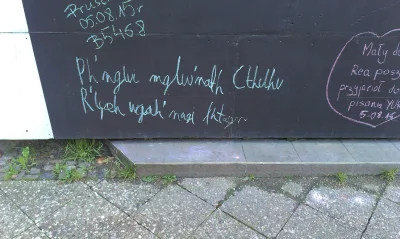 05.08.15r
B5468
Ph'nglui mglw'nafh Cthulhu
R'lyeh wgah'nagl fhtagn
Mały
Rea
przyjaciół do
pisania
5.08.15